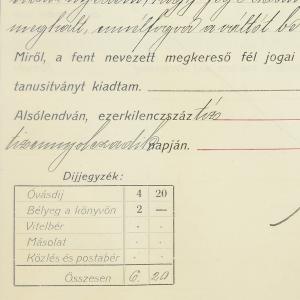 meghalt, ennélfogva a váltót be
Miről, a fent nevezett megkereső fél jogai
tanusítványt kiadtam.
Alsólendván, ezerkilenczszáz tíz
tizennyolczadik napján.
Díjjegyzék:
Óvásdíj 4 20
Bélyeg a könyvön 2 —
Vitelbér . .
Másolat . .
Közlés és postabér . .
Összesen 6. 20